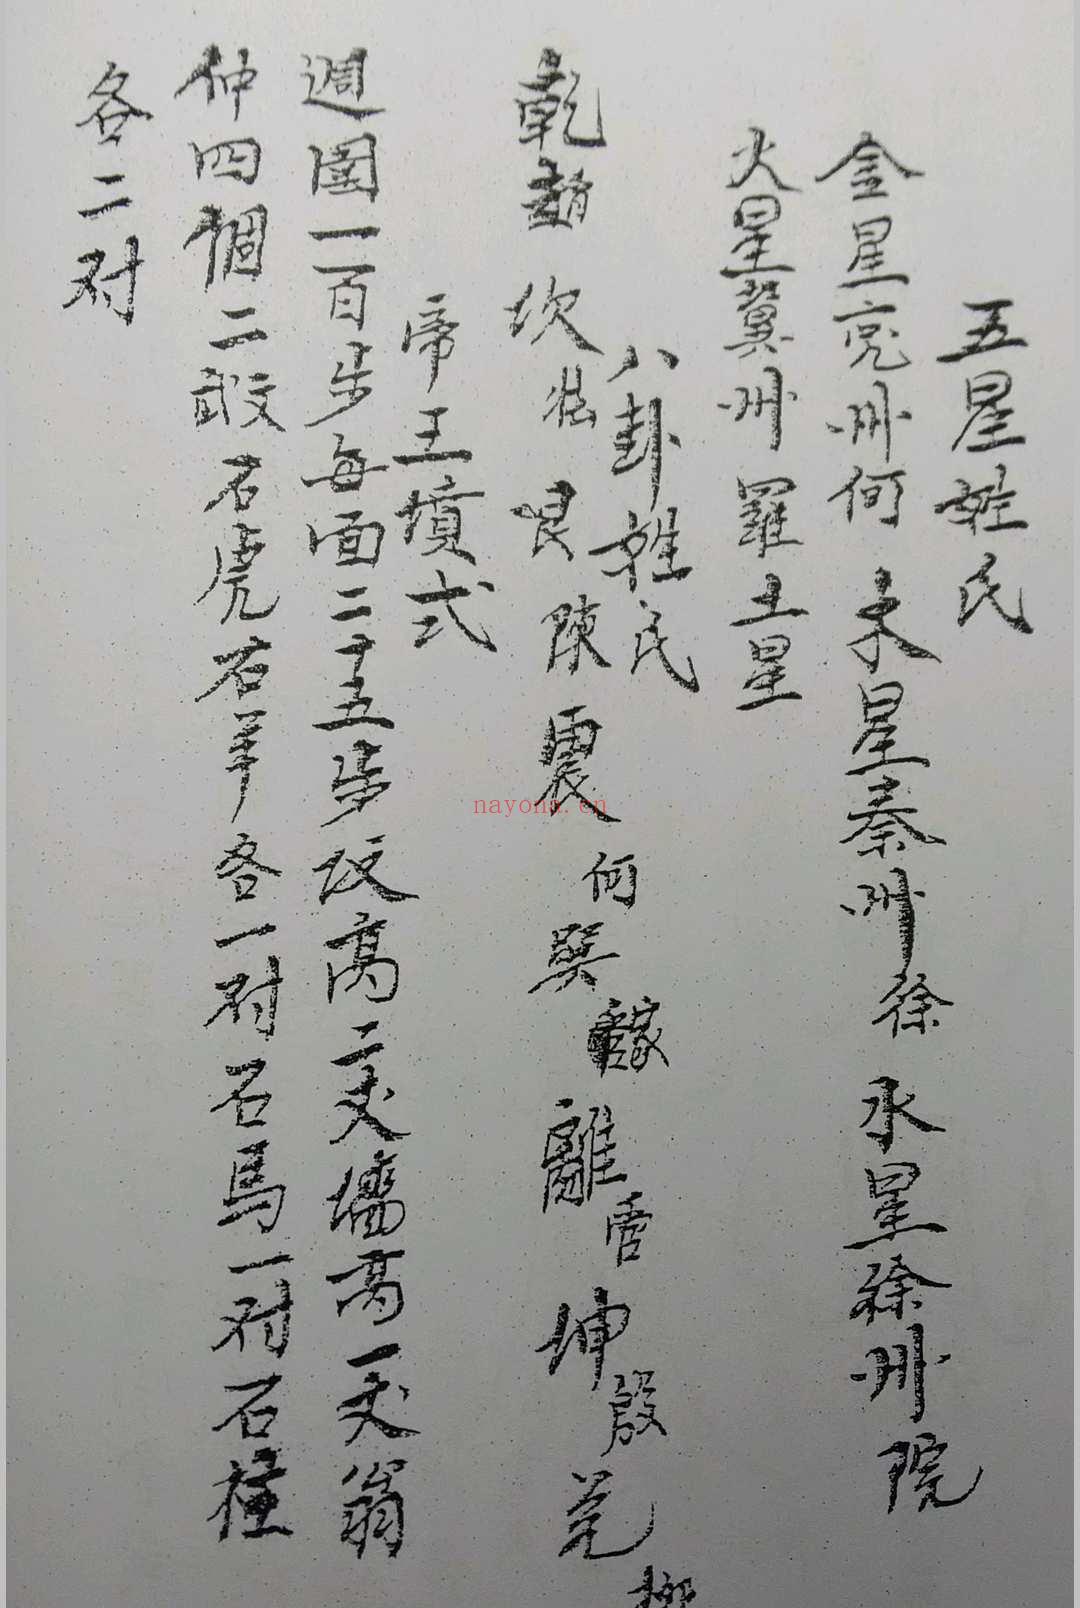 五星姓氏
金星兗州何 木星秦州徐 水星徐州院
火星冀州羅 土星
八卦姓氏
乾趙 坎 艮陳 震何 巽 離 坤殷 兌柳
帝王墳式
週圍一百步每面二十五步墳高二丈墻高一丈翁
仲四個 石虎石羊各一对石馬一对石柱
各二对
nayona.cn